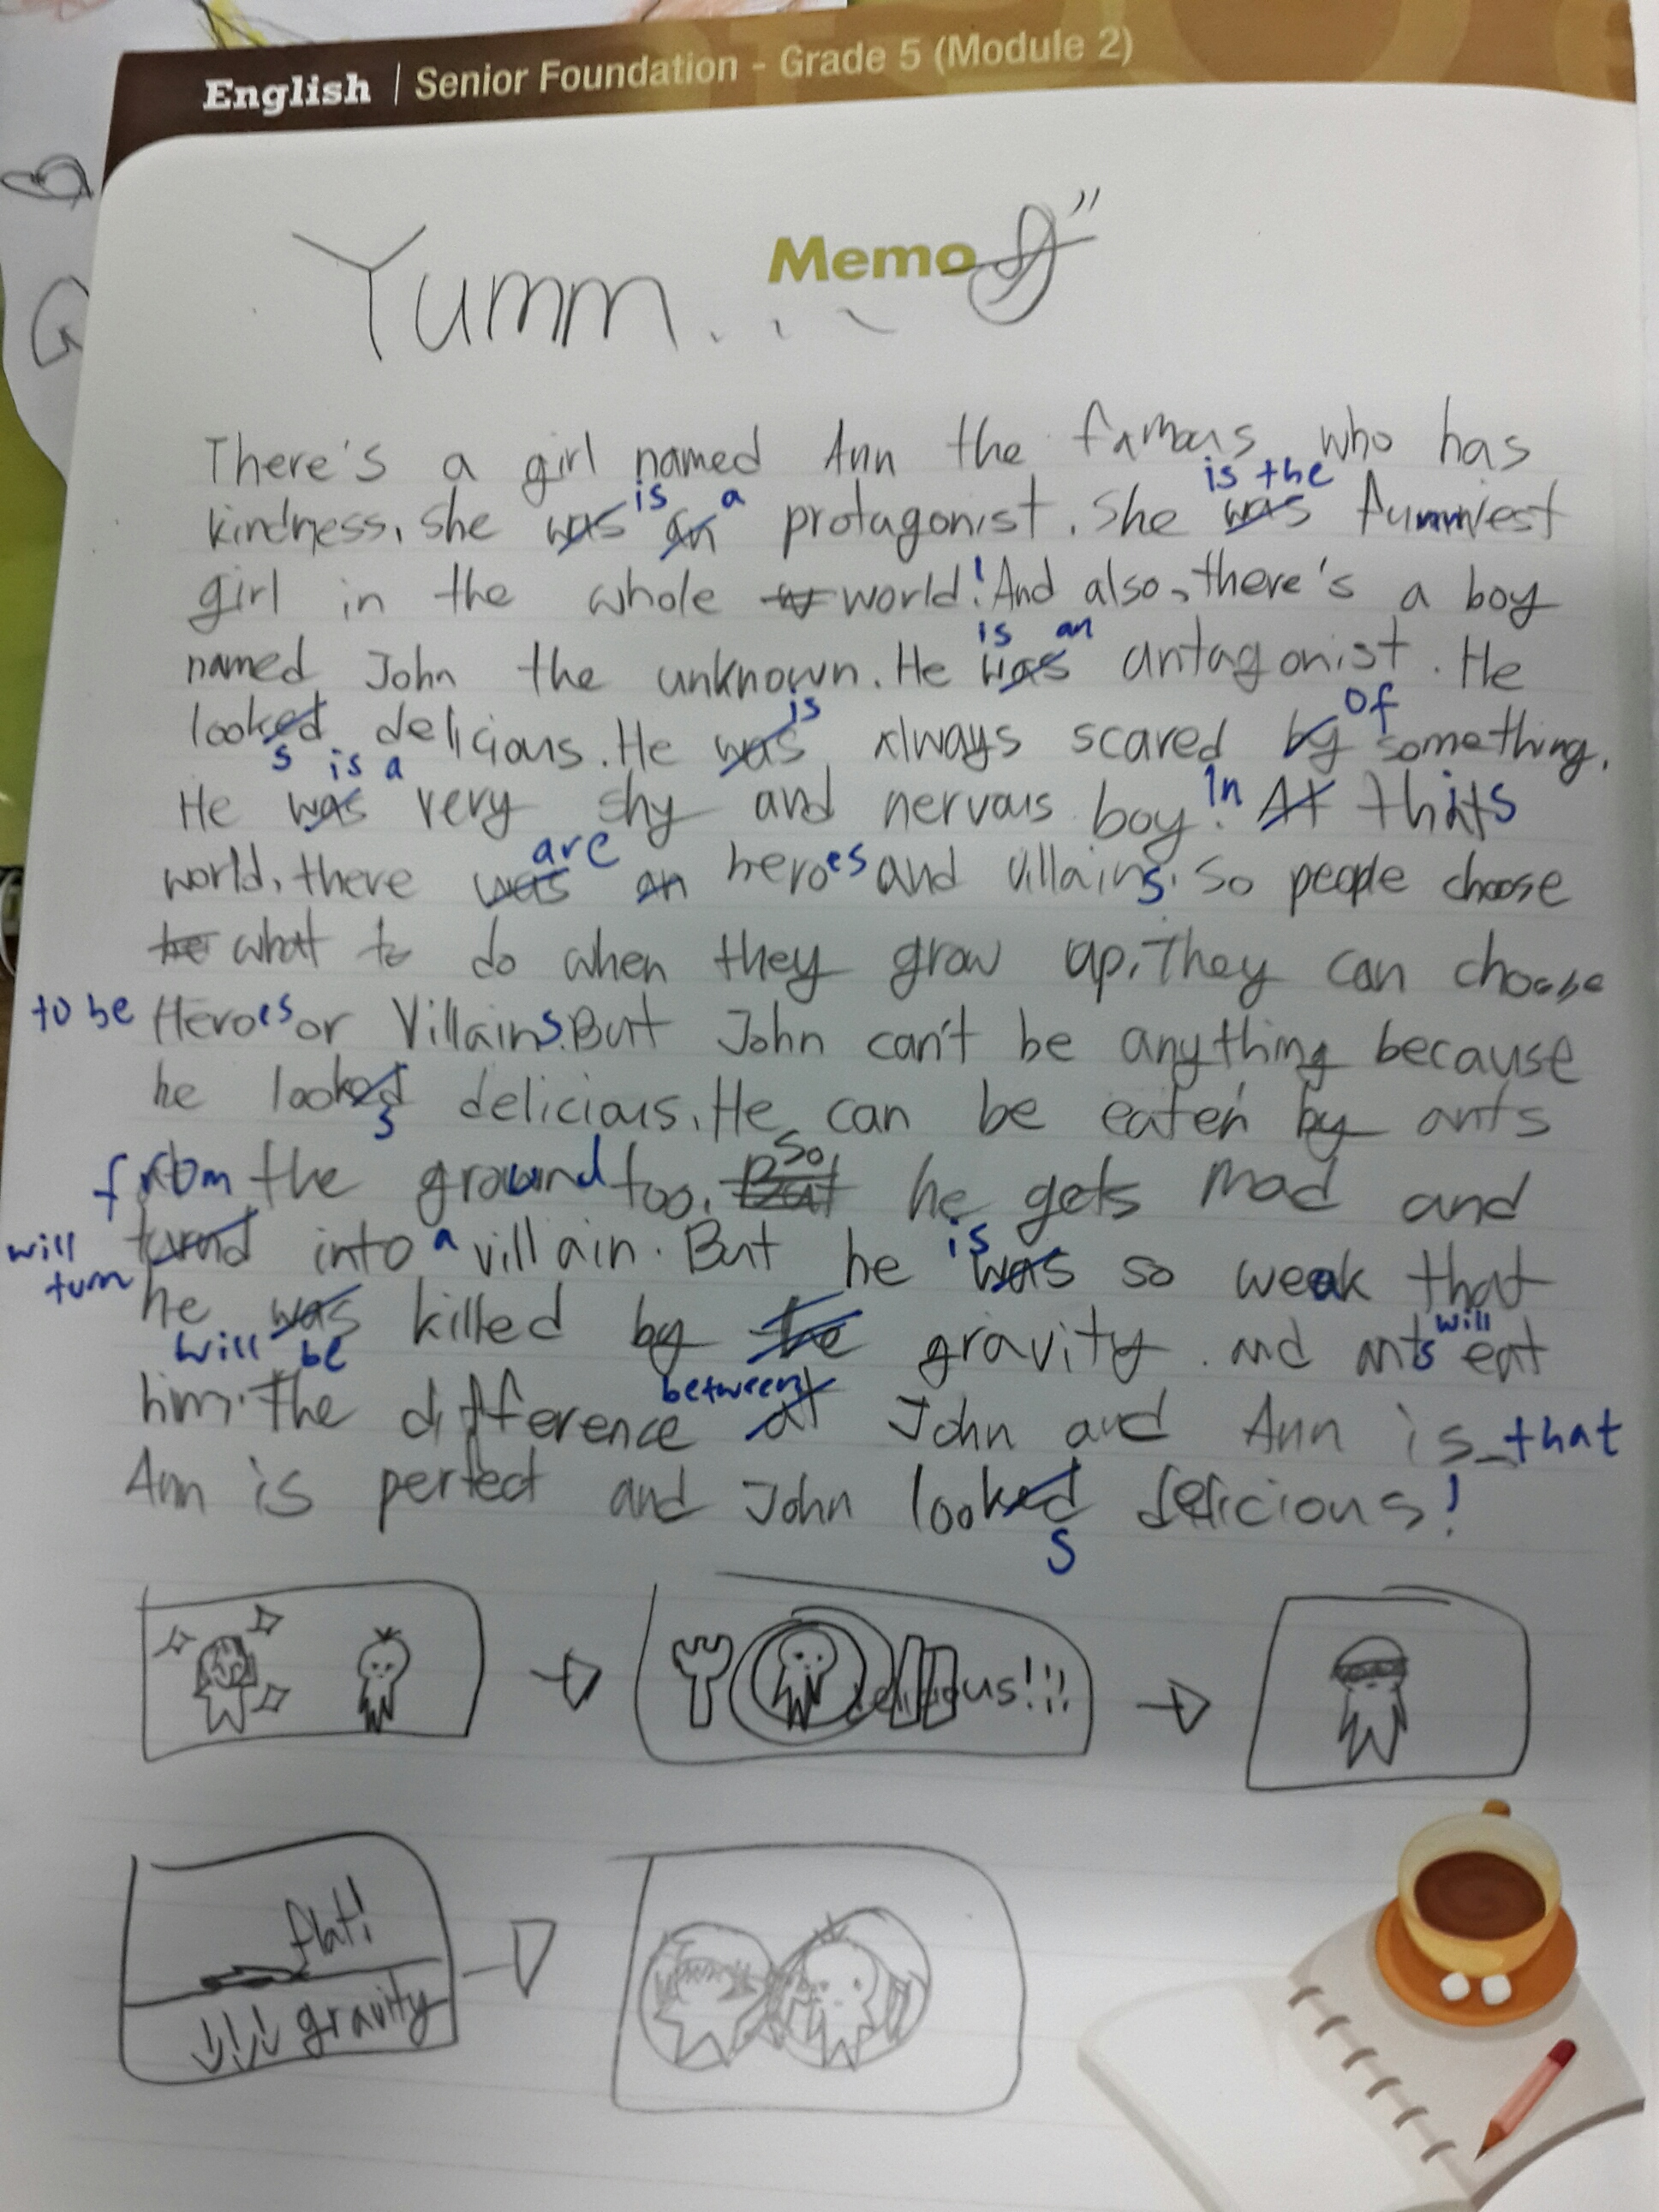 English | Senior Foundation - Grade 5 (Module 2)
Memo
Yumm...
There's a girl named Ann the famous who has
is a is the
kindness. She was an protagonist. She was funniest
girl in the whole w world! And also, there's a boy
is an
named John the unknown. He was antagonist. He
is of
looked delicious. He was always scared by something.
s is a In
He was very shy and nervous boy. At this
are
world, there was an heroes and villains. So people choose
he what to do when they grow up. They can choose
to be Heroes or Villains. But John can't be anything because
he looked delicious. He can be eaten by ants
s
So
from the ground too. But he gets mad and
will turnd into a villain. But he is was so weak that
turn
he was killed by he gravity. and ants will eat
will be
between
him. The difference at John and Ann is that
Ann is perfect and John looked delicious!
s
delicious!!!
flat!
gravity